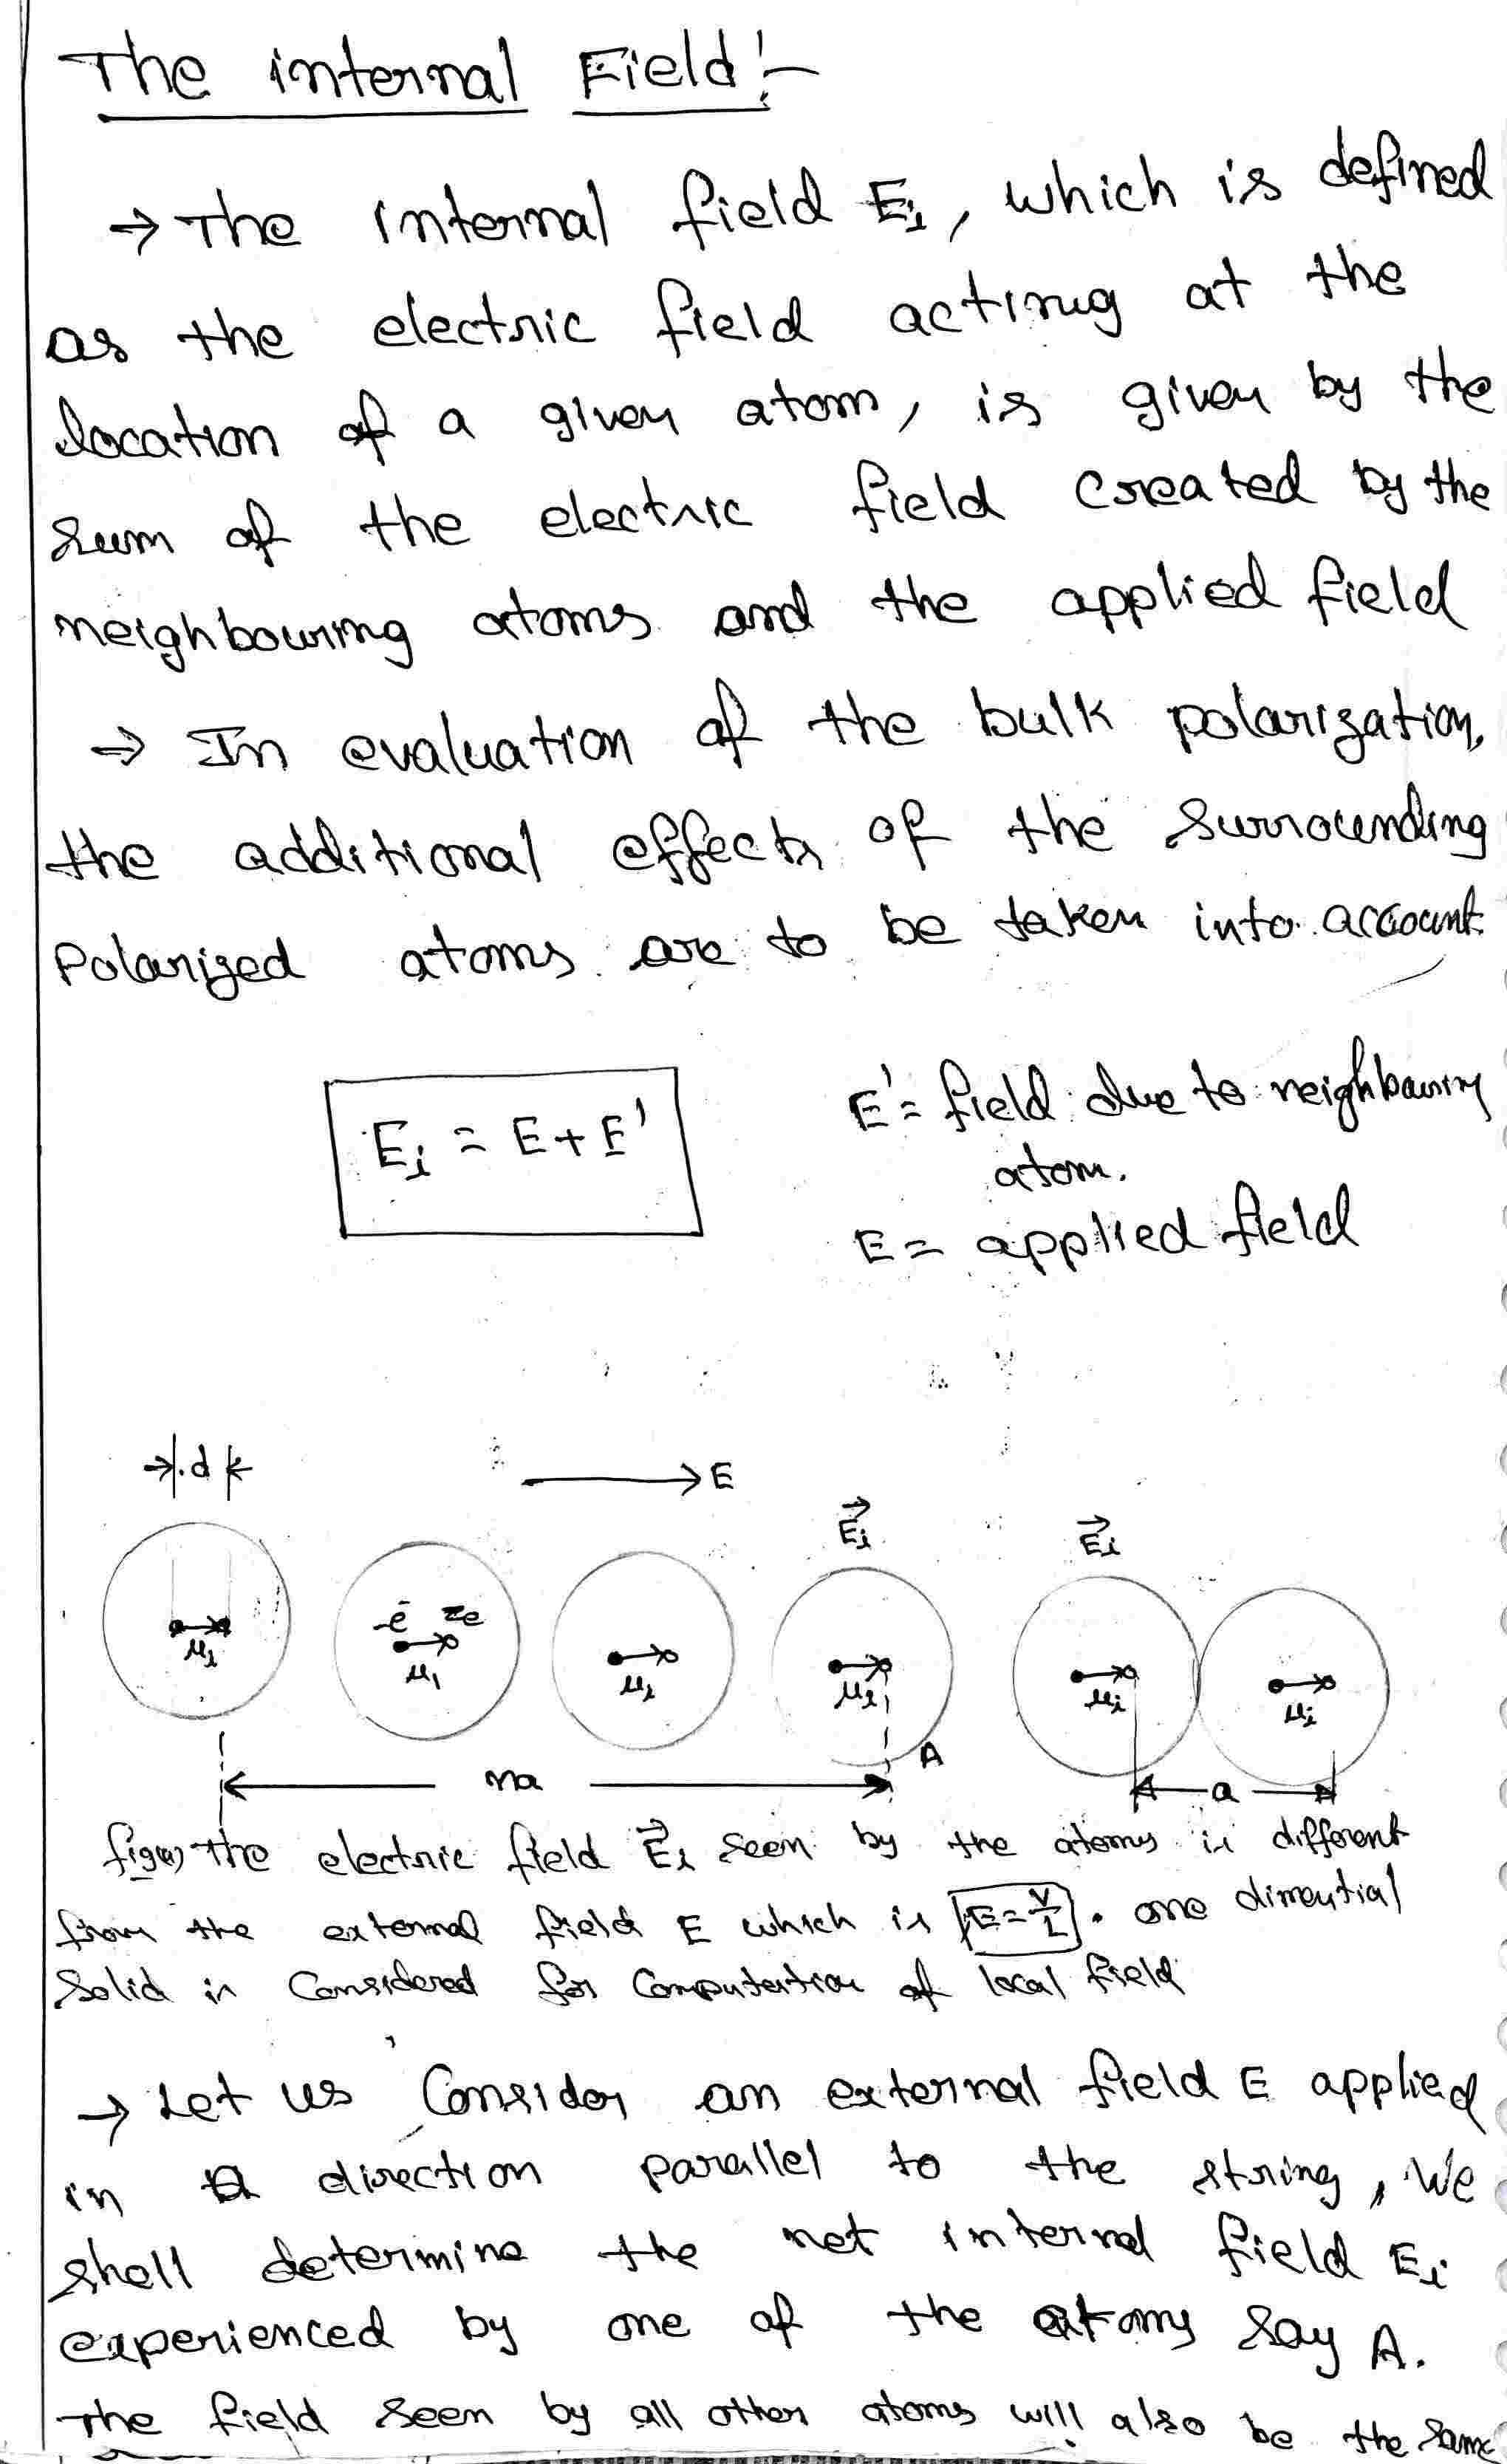 The internal Field:-
→ The internal field Ei, which is defined
as the electric field acting at the
location of a given atom, is given by the
sum of the electric field created by the
neighbouring atoms and the applied field
⇒ In evaluation of the bulk polarization,
the additional effects of the surrounding
Polarized atoms are to be taken into account
Ei = E + E'
E' = field due to neighbouring
atom.
E = applied field
→|d|←
→ E
Ei Ei
-e ze
μi μi μi μi μi μi
A
na a
fig(a) The electric field Ei seen by the atoms is different
from the external field E which is E = V/L. one dimential
Solid is Considered for Computation of local field
→ Let us Consider an external field E applied
in a direction parallel to the string, We
shall determine the net internal field Ei
experienced by one of the atoms Say A.
The field seen by all other atoms will also be the same